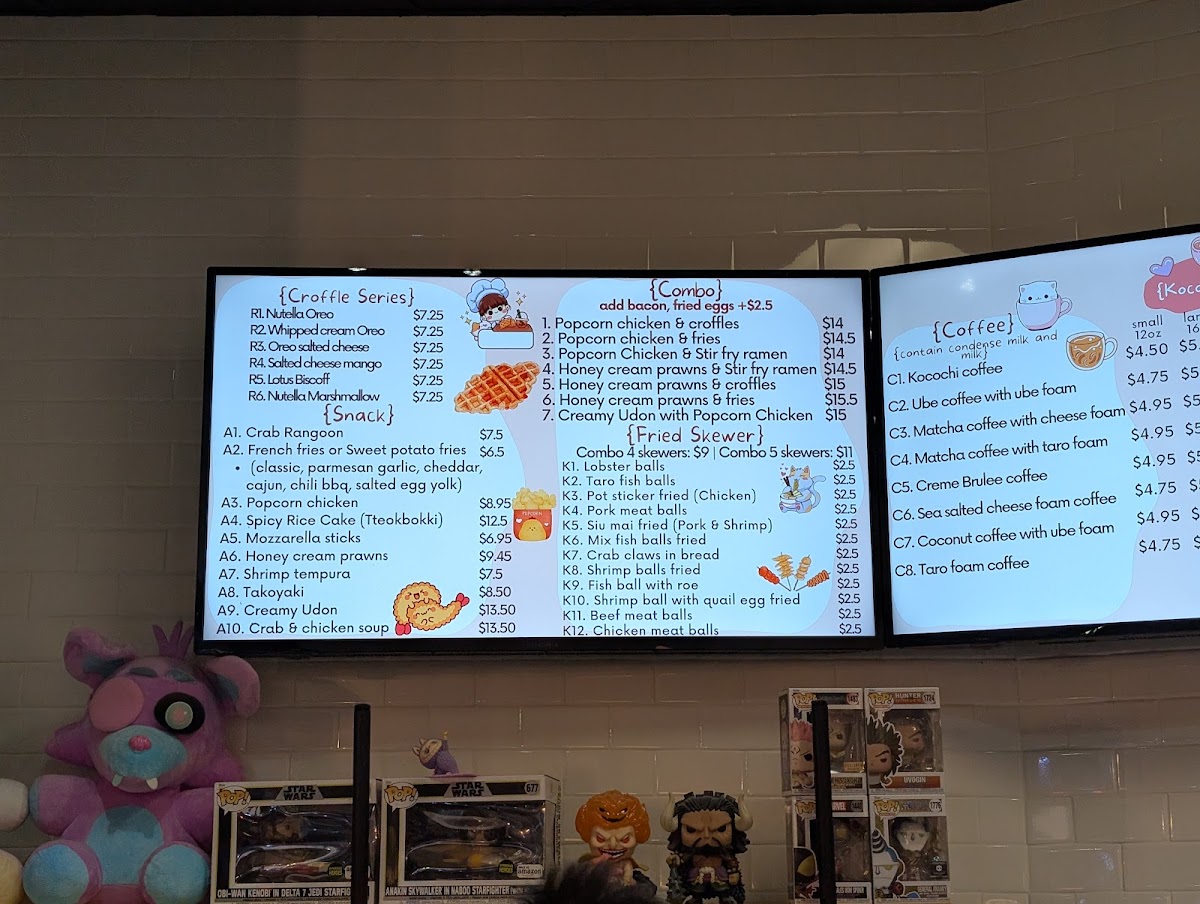 {Croffle Series}
R1. Nutella Oreo $7.25
R2. Whipped cream Oreo $7.25
R3. Oreo salted cheese $7.25
R4. Salted cheese mango $7.25
R5. Lotus Biscoff $7.25
R6. Nutella Marshmallow $7.25
{Snack}
A1. Crab Rangoon $7.5
A2. French fries or Sweet potato fries $6.5
• (classic, parmesan garlic, cheddar,
cajun, chili bbq, salted egg yolk)
A3. Popcorn chicken $8.95
A4. Spicy Rice Cake (Tteokbokki) $12.5
A5. Mozzarella sticks $6.95
A6. Honey cream prawns $9.45
A7. Shrimp tempura $7.5
A8. Takoyaki $8.50
A9. Creamy Udon $13.50
A10. Crab & chicken soup $13.50
POPCORN
{Combo}
add bacon, fried eggs +$2.5
1. Popcorn chicken & croffles $14
2. Popcorn chicken & fries $14.5
3. Popcorn Chicken & Stir fry ramen $14
4. Honey cream prawns & Stir fry ramen $14.5
5. Honey cream prawns & croffles $15
6. Honey cream prawns & fries $15.5
7. Creamy Udon with Popcorn Chicken $15
{Fried Skewer}
Combo 4 skewers: $9 | Combo 5 skewers: $11
K1. Lobster balls $2.5
K2. Taro fish balls $2.5
K3. Pot sticker fried (Chicken) $2.5
K4. Pork meat balls $2.5
K5. Siu mai fried (Pork & Shrimp) $2.5
K6. Mix fish balls fried $2.5
K7. Crab claws in bread $2.5
K8. Shrimp balls fried $2.5
K9. Fish ball with roe $2.5
K10. Shrimp ball with quail egg fried $2.5
K11. Beef meat balls $2.5
K12. Chicken meat balls $2.5
{Koco
{Coffee}
{contain condense milk and
milk}
small
12oz
C1. Kocochi coffee $4.50
C2. Ube coffee with ube foam $4.75
C3. Matcha coffee with cheese foam $4.95
C4. Matcha coffee with taro foam $4.95
C5. Creme Brulee coffee $4.95
C6. Sea salted cheese foam coffee $4.75
C7. Coconut coffee with ube foam $4.95
C8. Taro foam coffee $4.75
POP!
STAR WARS
OBI-WAN KENOBI IN DELTA 7 JEDI STARFIG
POP!
STAR WARS
677
amazon
ANAKIN SKYWALKER IN NABOO STARFIGHTER
POP!
POP!
HUNTER
UVOGIN
MARVEL
POP!